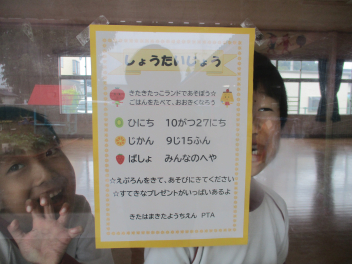 しょうたいじょう
きたきたっこランドであそぼう☆
ごはんをたべて、おおきくなろう
ひにち 10がつ27にち
じかん 9じ15ふん
ばしょ みんなのへや
☆えぷろんをきて、あそびにきてください
☆すてきなプレゼントがいっぱいあるよ
きたはまきたようちえん PTA